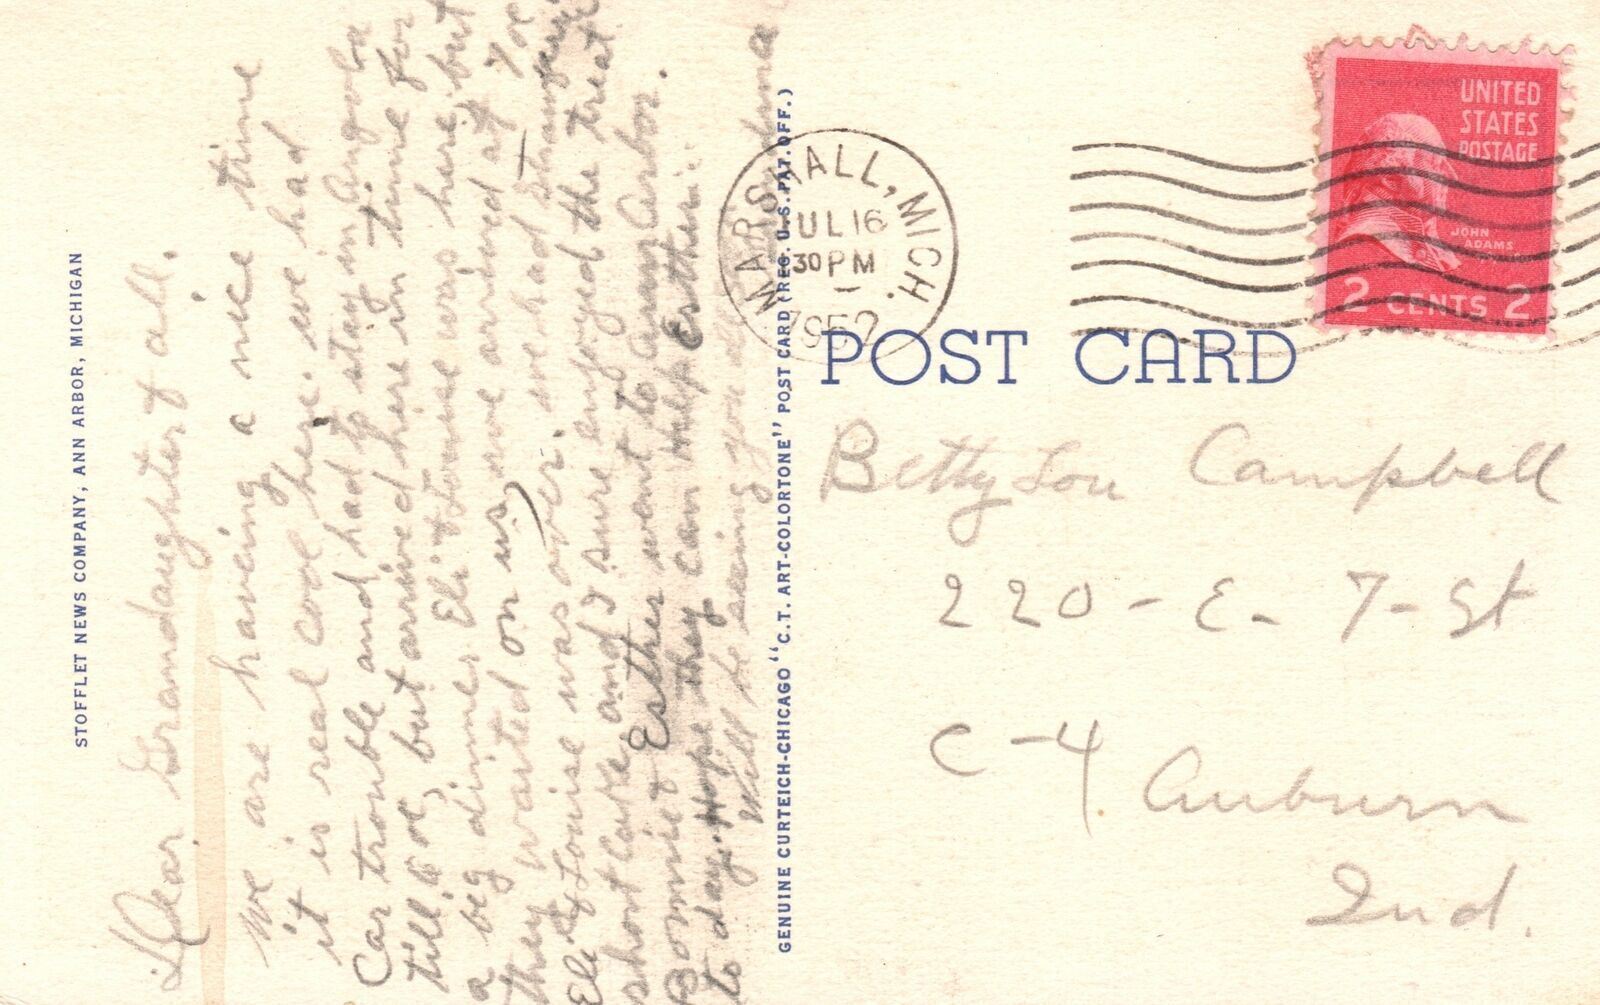 Dear Grandaughter & all.
We are haveing a nice time
it is real cool here. we had
Car trouble and had to stay in angola
till 6 oc, but arrived here in time for
a big dinner Eli & Louise was here, but
they waited on us, we arrived at 7 oc
Eli & Louise was over. we had Strawberry
short Cake, and I sure enjoyed the treat
Bonnie & Esther went to Ann Arbor.
to day. Hope they can help Esther.
Will be seeing you all
STOFFLET NEWS COMPANY, ANN ARBOR, MICHIGAN
GENUINE CURTEICH-CHICAGO "C.T. ART-COLORTONE" POST CARD (REG. U.S. PAT. OFF.)
MARSHALL, MICH.
JUL 16
30 PM
1952
UNITED
STATES
POSTAGE
JOHN
ADAMS
2 CENTS 2
POST CARD
Betty Lou Campbell
220 - E - 7 - St
C - 4 Auburn
Ind.